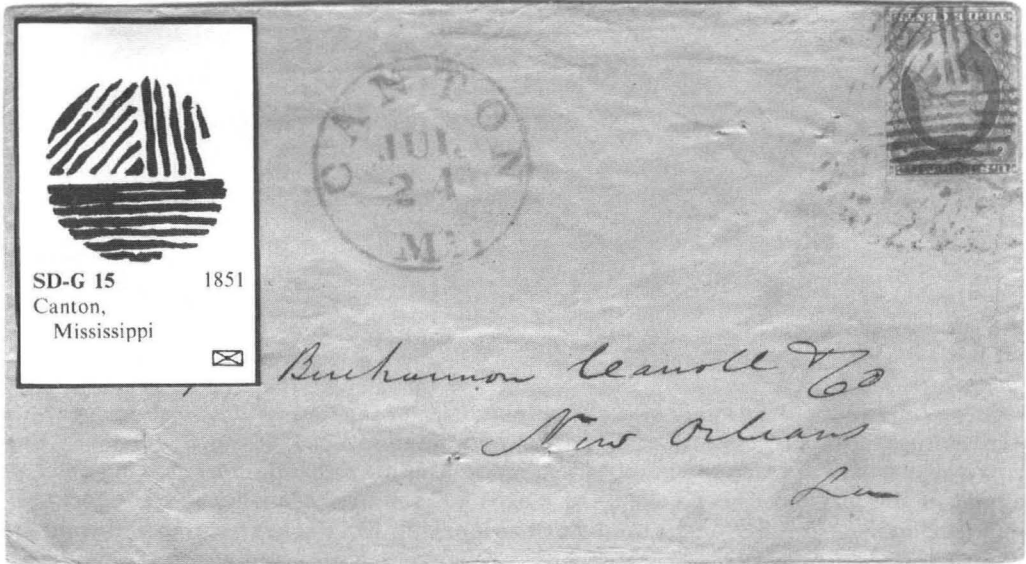 SD-G 15 1851
Canton,
Mississippi
CANTON
JUL
24
Mi.
Buchannon Carroll & Co
New Orleans
La